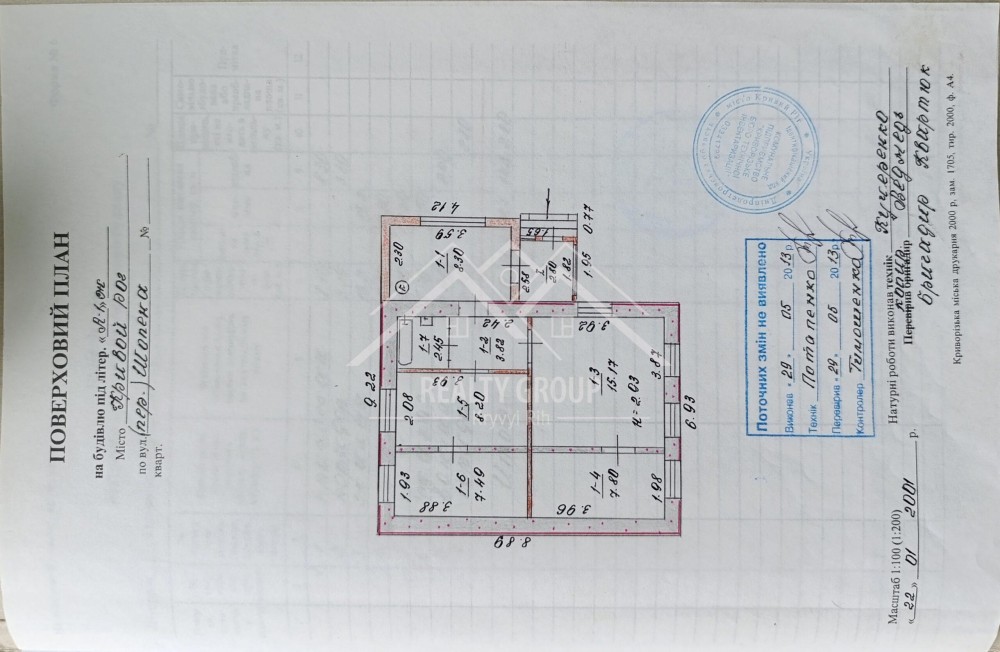 ПОВЕРХОВИЙ ПЛАН
на будівлю під літер. «А-1» ж
Місто Кривой рог
по вул. (пер.) Шопена № 
кварт.
4.12
3.59
2.30
1-1
8.30
К
1.65
0.77
I
2.80
1.82
1.95
2.58
9.22
1-7
2.45
2.42
1-2
3.82
3.92
3.93
2.08
1-5
8.20
1-3
15.17
h = 2.03
3.87
6.93
1.93
1-6
7.49
3.88
1-4
7.80
1.98
3.96
8.89
REALTY GROUP
Kryvyi Rih
Поточних змін не виявлено
Виконав «29» 05 2013 р.
Технік Потапенко
Перевірив «29» 05 2013 р.
Контролер Тимошенко
Україна
місто Кривий Ріг
Масштаб 1:100 (1:200)
«22» 01 2001 р.
Натурні роботи виконав технік Кучеренко
копир Ведмедь
Перевірив бригадир
бригадир Квартюк
Криворізька міська друкарня 2000 р, зам. 1705, тир. 2000, ф. А4.